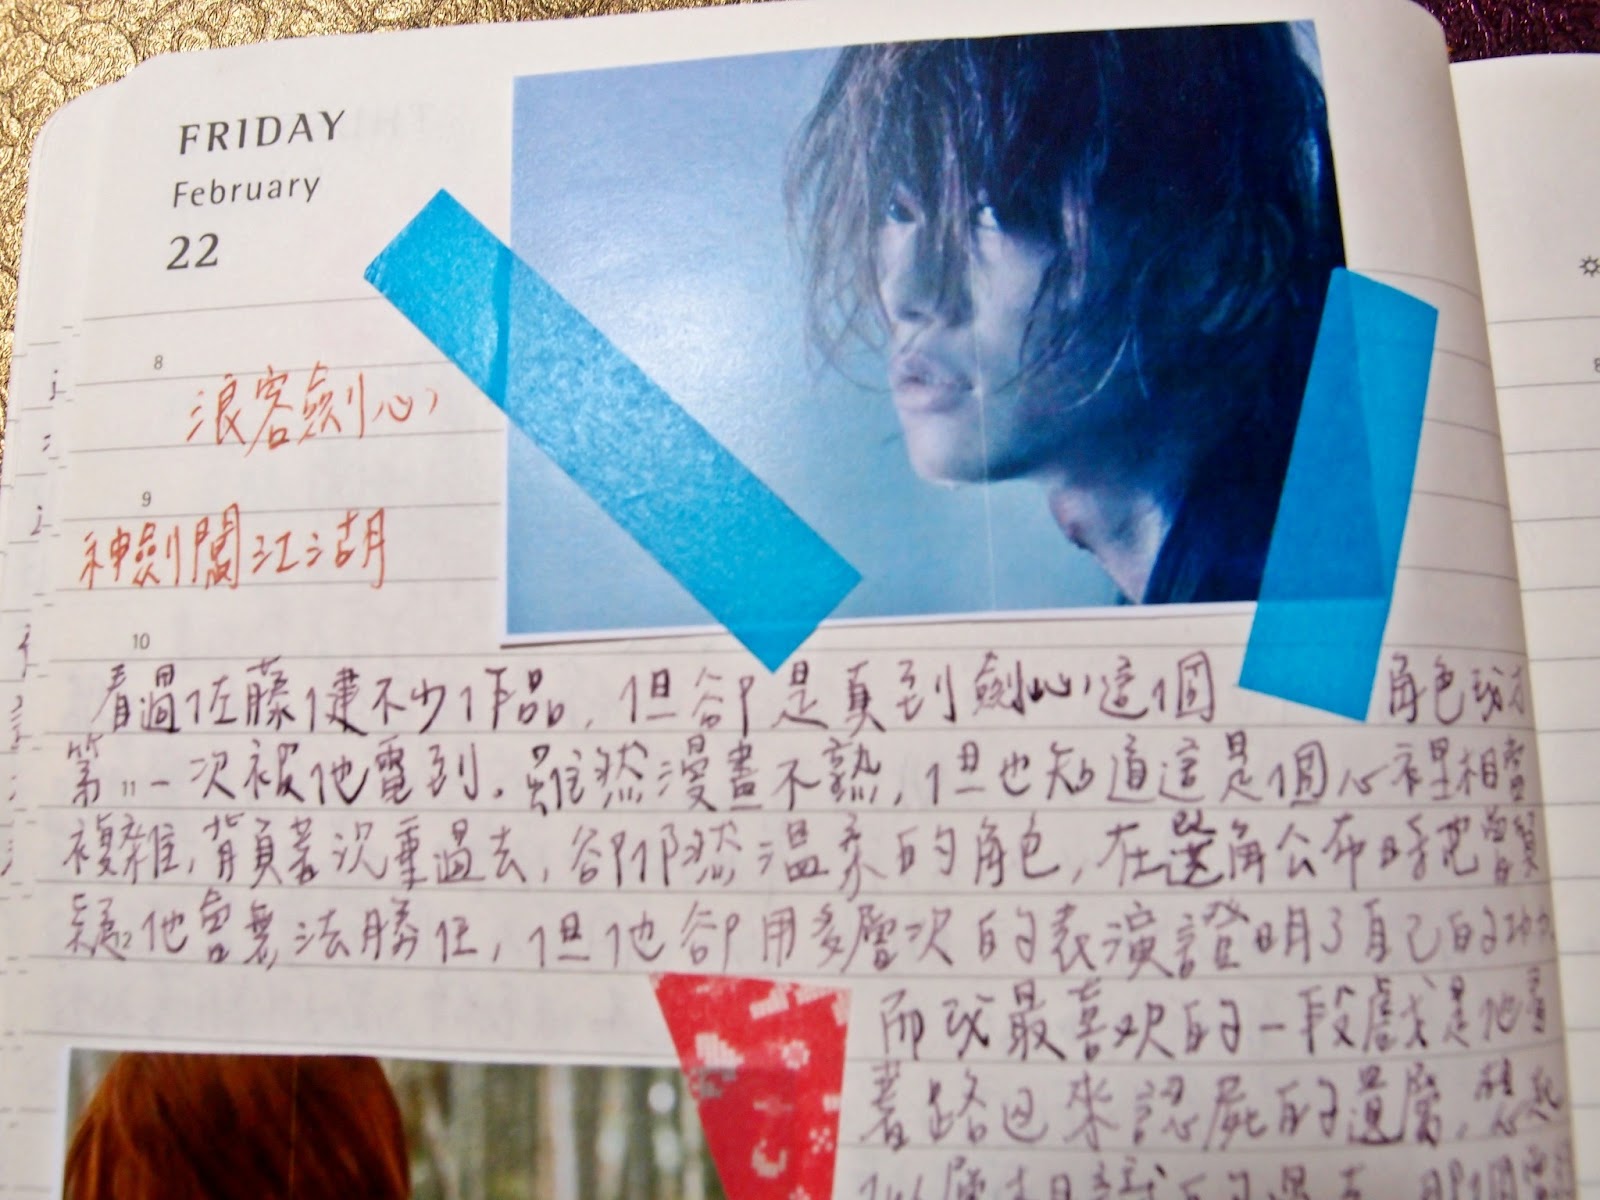 FRIDAY
February
22
8
浪客劍心
9
神劍闖江湖
10
看過佐藤健不少作品，但卻是直到劍心這個角色我才
第一次被他電到。雖然漫畫不熟，但也知道這是個心裡相當
複雜，背負著沉重過去，卻仍然溫柔的角色，在選角公布時也曾
疑他會無法勝任，但他卻用多層次的表演證明了自己的
而我最喜歡的一段戲是他看
著路過來認屍的遺屬，想起
8